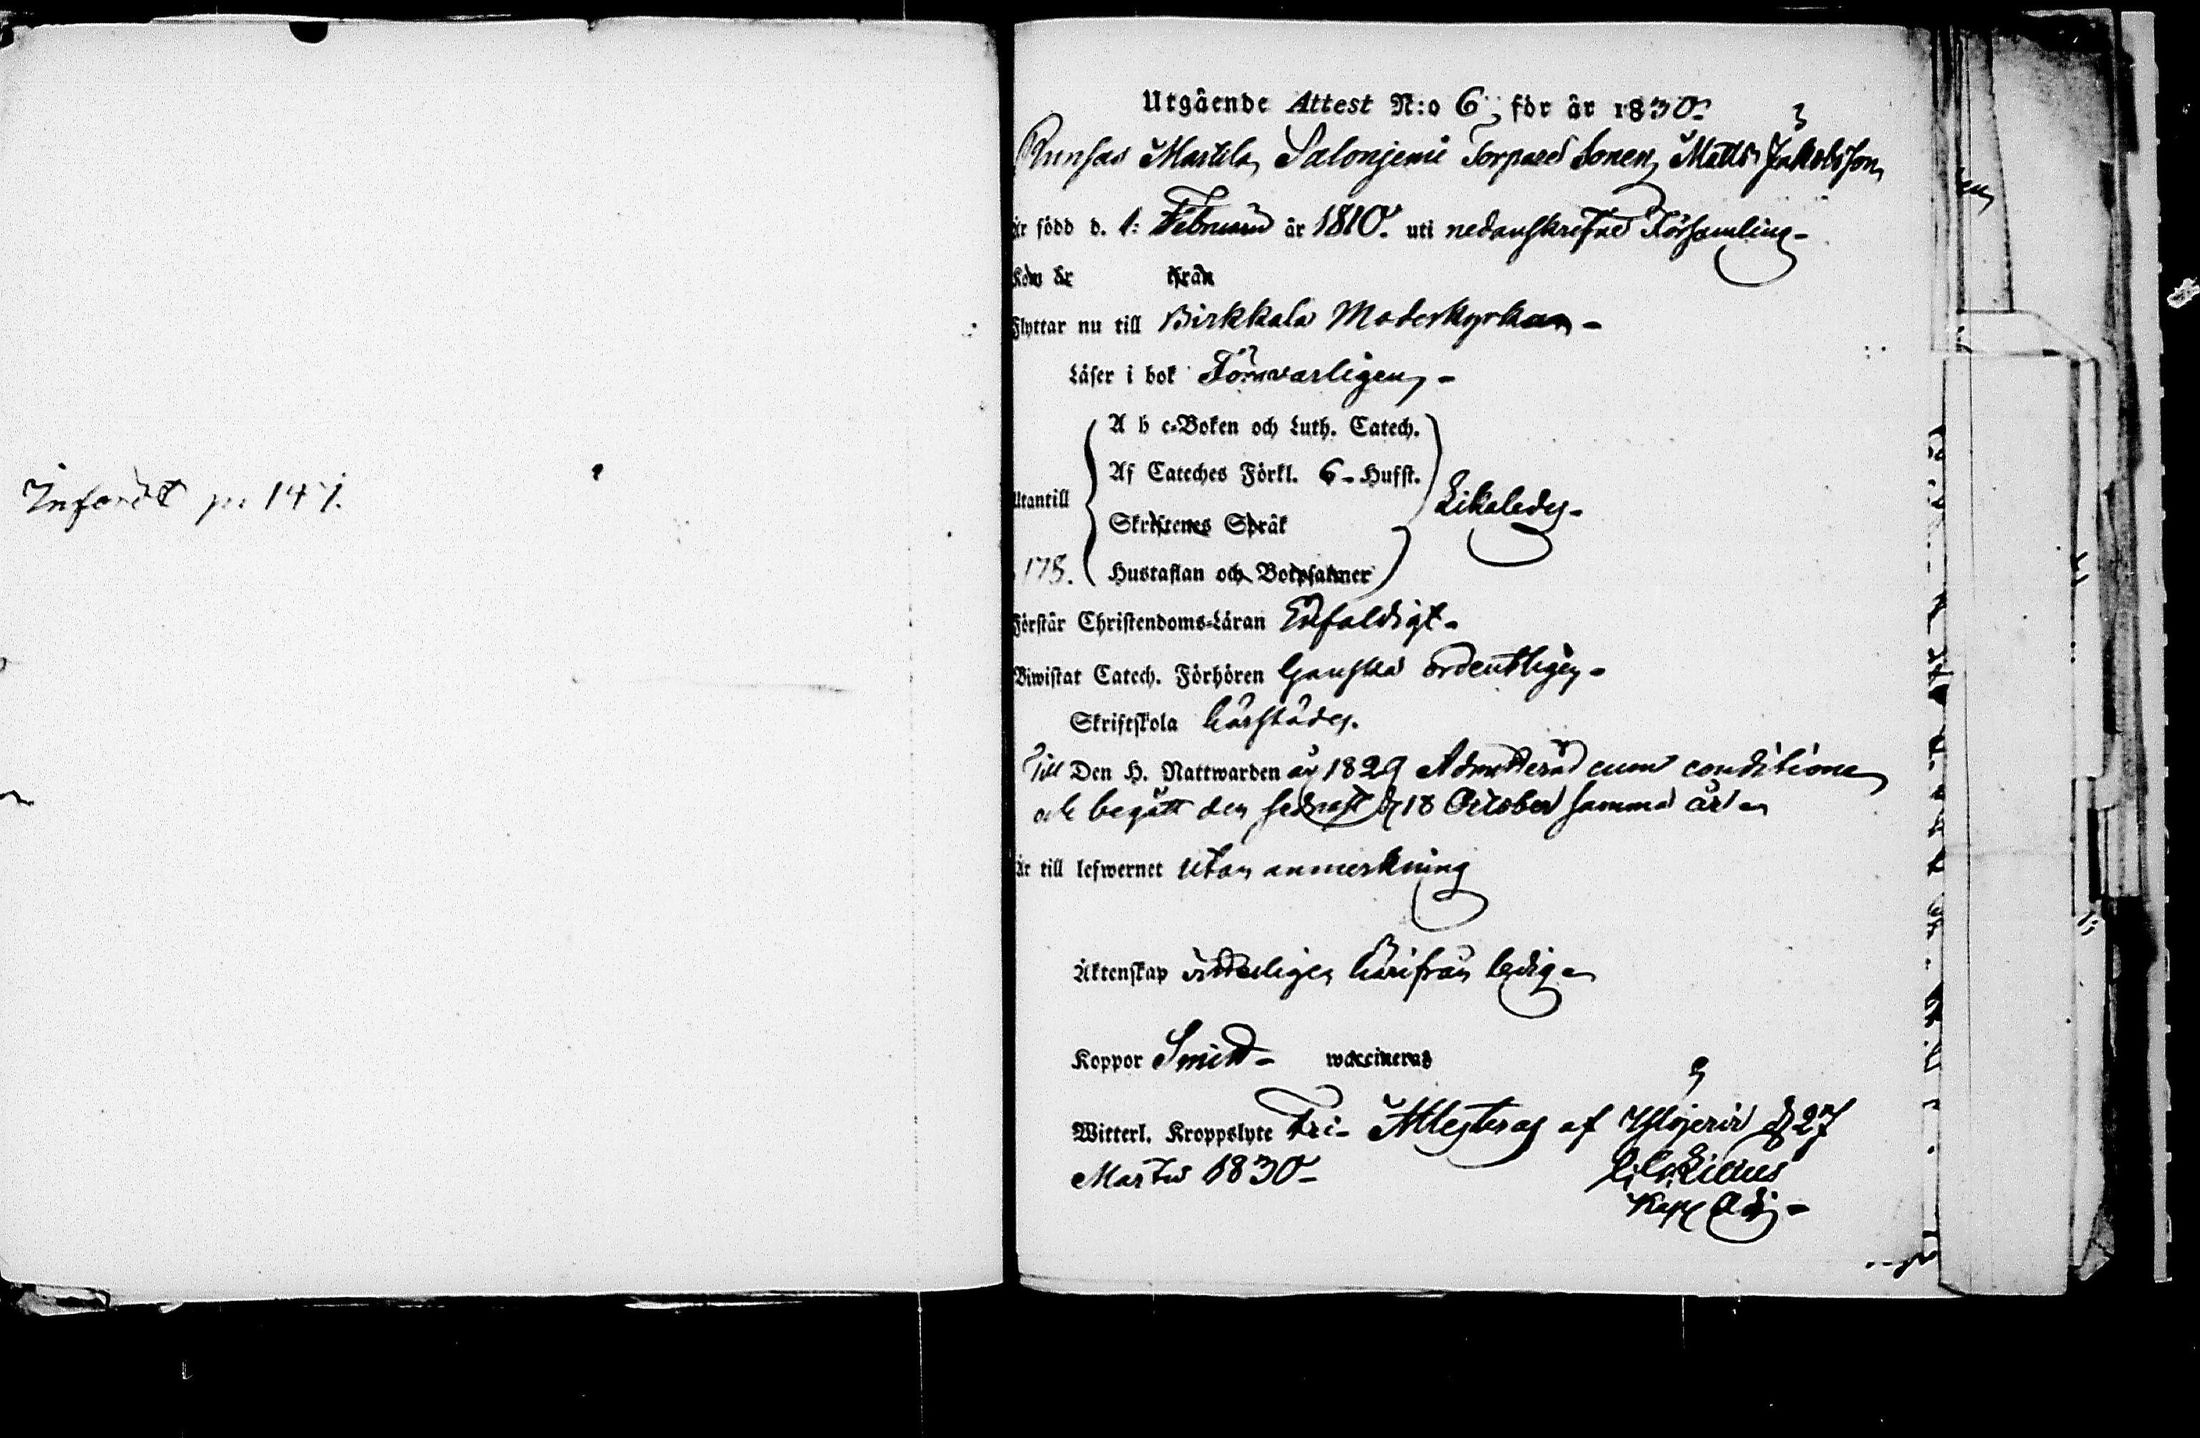 Infördt p: 147.
Utgående Attest N:o 6, för år 1830.
Martila Salonjemi Torpare Sonen Matts Jakobsson
Är född d. 1: Februarii år 1810. uti nedanskrefne Församling-
Kom år från
Flyttar nu till Birkkala Moderkyrkan -
Läser i bok Försvarligen, -
A b c-Boken och Luth. Catech.
Af Cateches Förkl. 6 - Hufst.
Utantill Likaledes -
Skriftenes Språk
178. Hustaflan och Botpsalmer
Förstår Christendoms-Läran Enfaldigt -
Biwistat Catech. Förhören Ganska ordentligen -
Skriftskola härstädes.
Till Den H. Nattwarden år 1829 Admitterad cum conditione
och begått den sednast d 18 October samma år -
Är till lefwernet utan anmerkning
Äktenskap härifrån ledig -
Koppor - waccinerad
Witterl. Kroppslyte Fri - Attesteras af Ylöjerwi d 27
Martii 1830 -
Kap Adj -